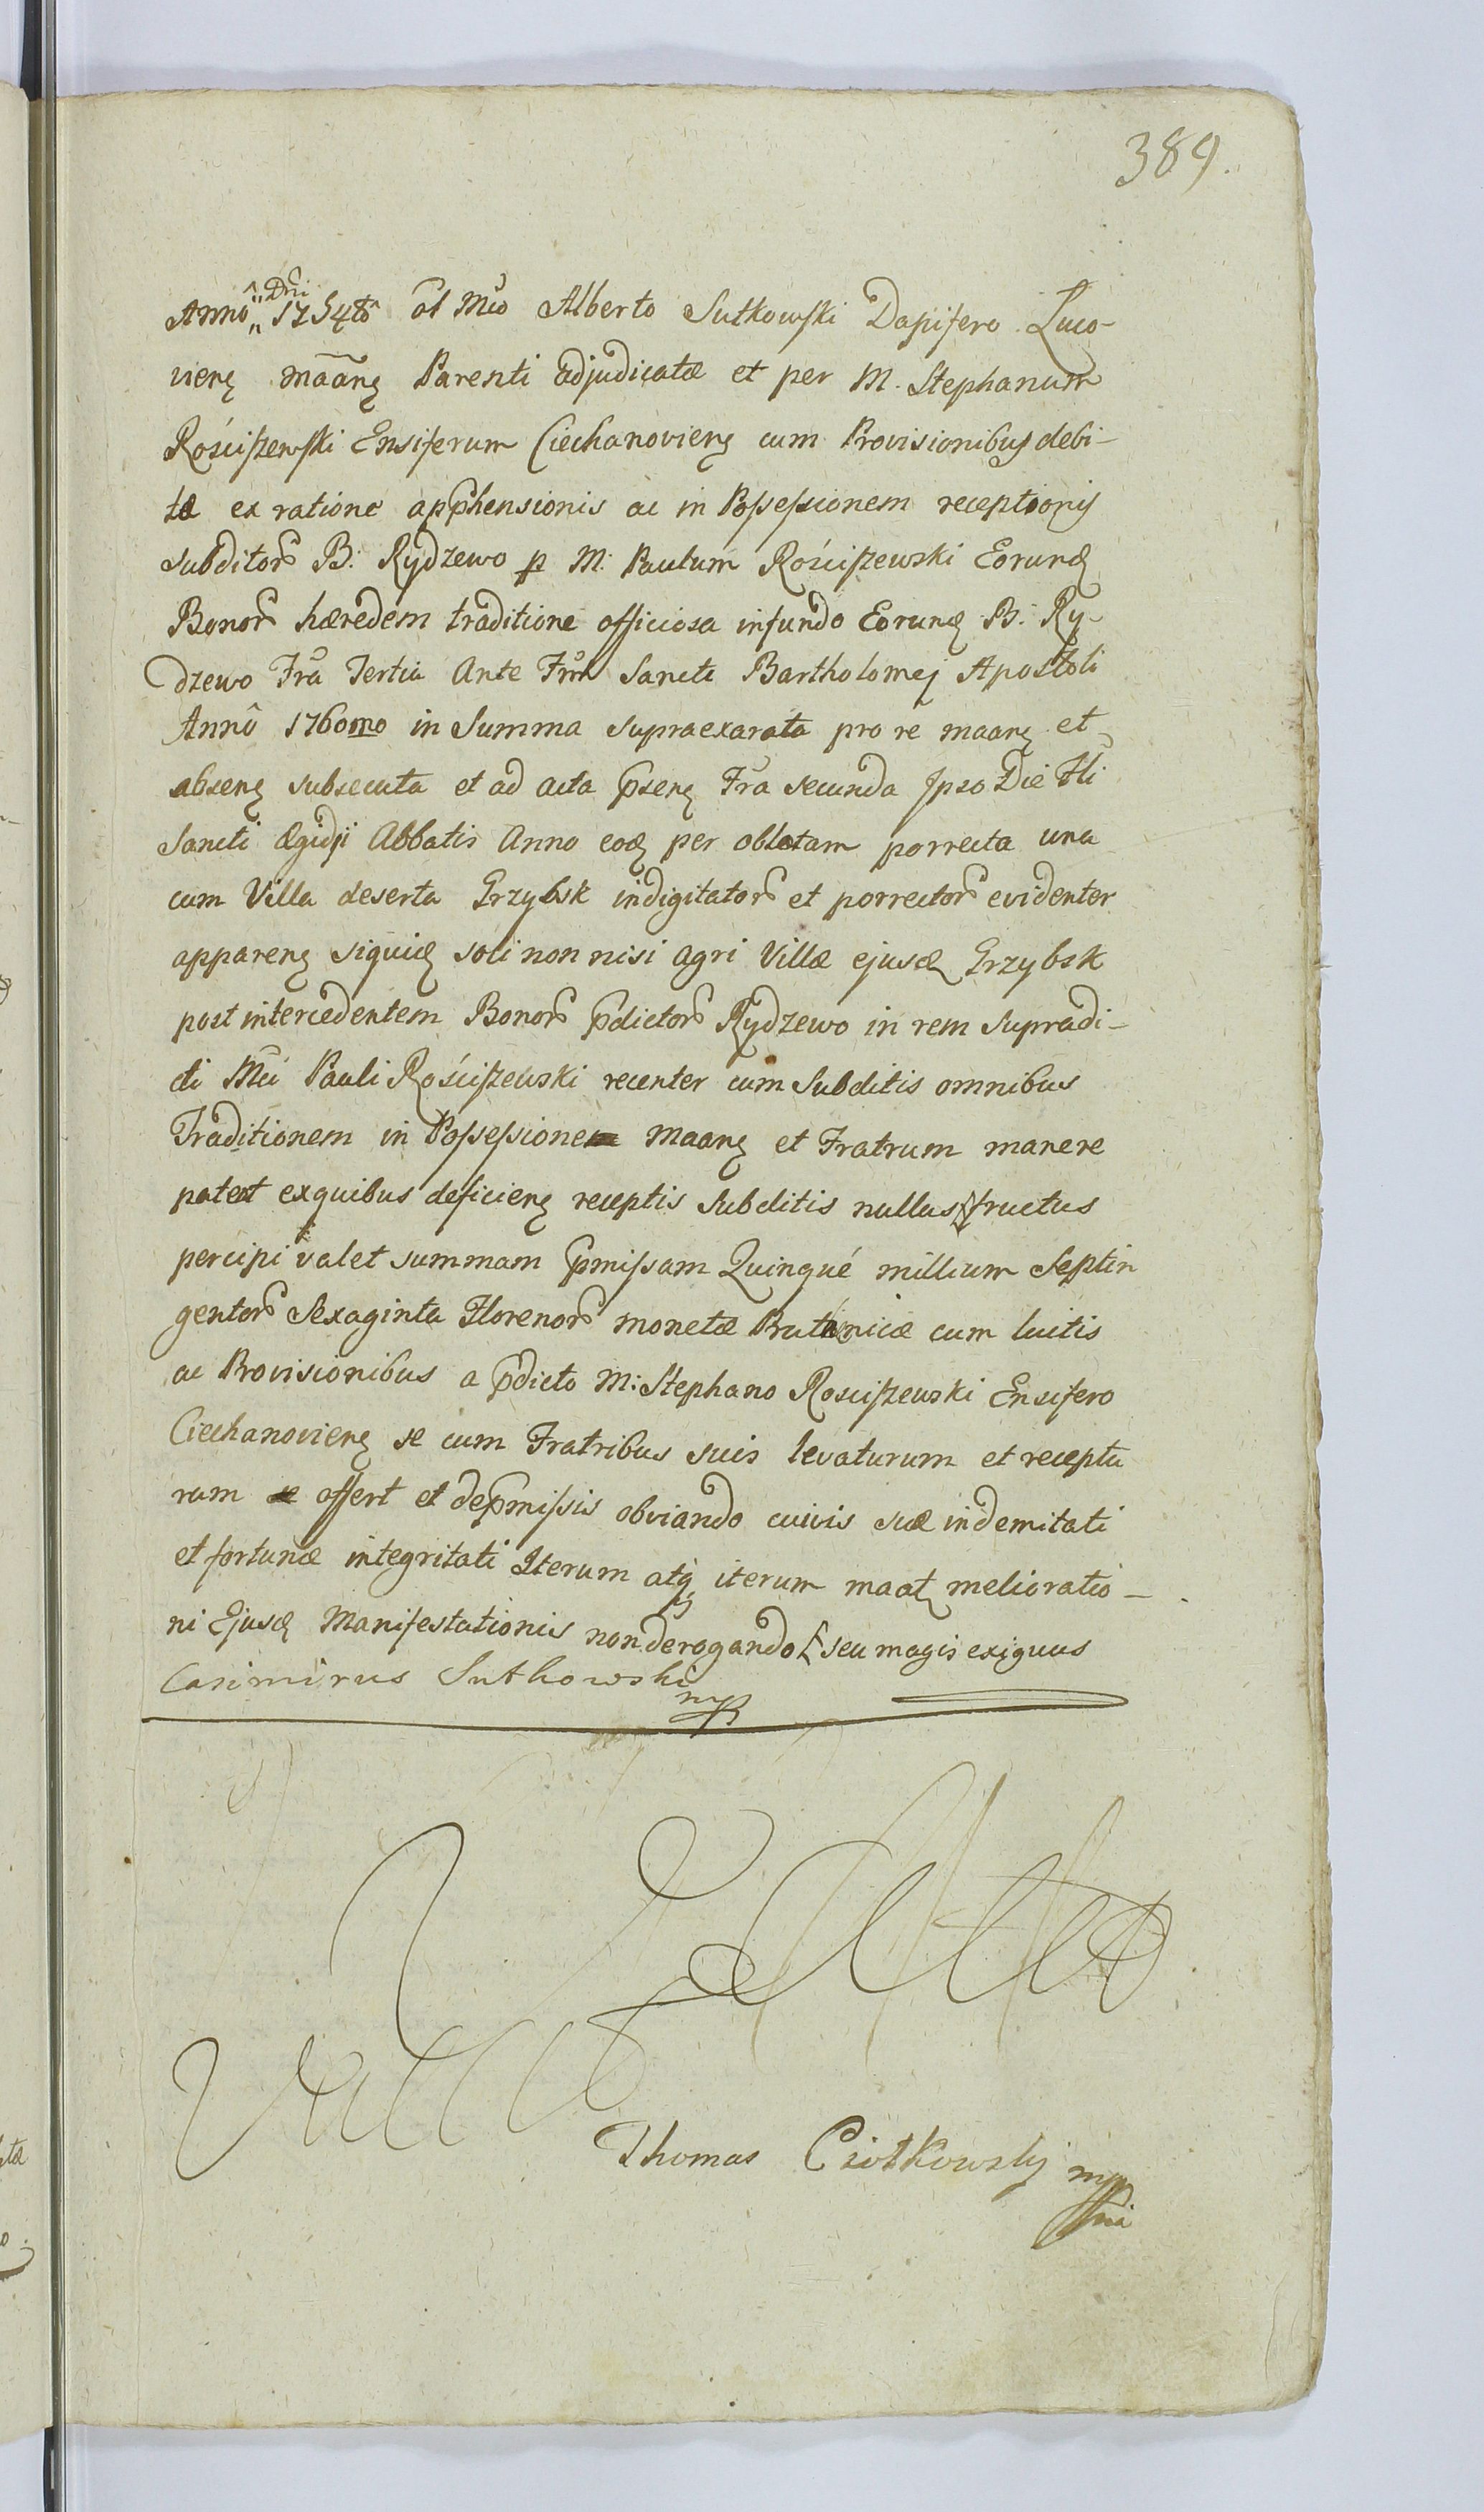 389.
Dni
Annô „ 1754tô ol Mco Alberto Sutkowski Dapifero Luco-
vieng maang Parenti adjudicatæ et per M. Stephanum
Rościszewski Ensiferum Ciechanovieng cum Provisionibus debi-
tæ ex ratione apphensionis ac in Possessionem receptionis
subditor B: Rydzewo p M: Paulum Rościszewski Eorund
Bonor hæredem traditione officiosa infundo Eorund B: Ry-
dzewo Fra Tertia Ante Frm Sancti Bartholomej Apostoli
Annô 1760mo in Summa supraexarata pro re maang et
abseng subsecuta et ad acta pseng Fra secunda Ipso Die Fli
Sancti Ægidji Abbatis Anno eod per oblatam porrecta una
cum Villa deserta Grzybsk indigitator et porrector evidenter
appareng siquid soli non nisi agri Villæ ejusd Grzybsk
post intercedentem Bonor pdictor Rydzewo in rem supradi-
cti Mci Pauli Rościszewski recenter cum Subditis omnibus
Traditionem in Possessione maang et Fratrum manere
patent exquibus deficieng receptis Subditis nullus fructus
percipi valet summam pmissam Quinqué millium Septin
gentor Sexaginta Florenor monetæ Prutenicæ cum lucris
ac Provisionibus a pdicto M: Stephano Rosciszewski Ensifero
Ciechanovieng se cum Fratribus suis levaturum et receptu
rum offert et depmissis obviando cuivis suæ indemitati
et fortunæ integritati Iterum atq iterum maat melioratio-
ni Ejusd Manifestationis non derogando seu magis exiguus
Casimirus Sutkowski
mp
Thomas Ciotkowskj mp